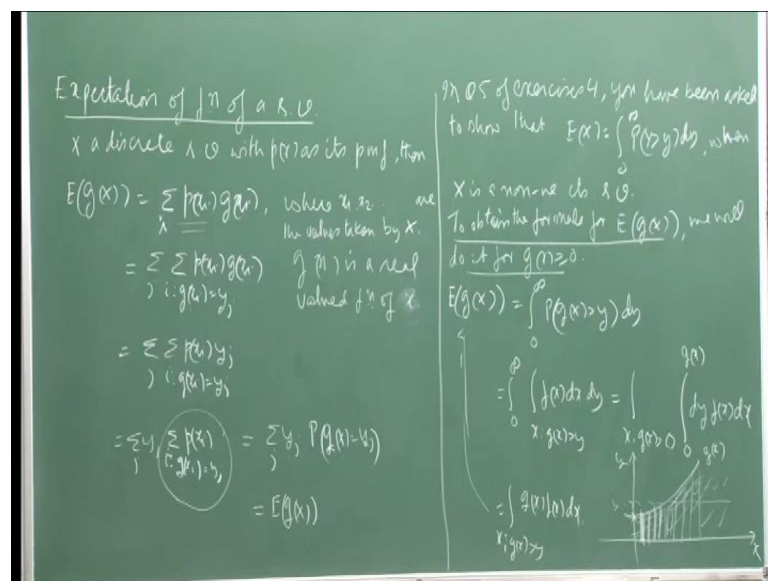 Expectation of f^n of a r.v.
X a discrete r.v with p(x) as its pmf, then
E(g(x)) = Σ_i p(x_i) g(x_i), where x_1 x_2 .. are
the values taken by X.
= Σ_j Σ_{i: g(x_i) = y_j} p(x_i) g(x_i) g(x) is a real
valued f^n of x
= Σ_j Σ_{i: g(x_i) = y_j} p(x_i) y_j
= Σ_j y_j Σ_{i: g(x_i) = y_j} p(x_i) = Σ_j y_j P(g(x) = y_j)
= E(g(x))
In Q5 of exercises 4, you have been asked
to show that E(x) = ∫_0^∞ P(x > y) dy, when
X is a non-ve cts r.v.
To obtain the formula for E(g(x)), we will
do it for g(x) ≥ 0.
E(g(x)) = ∫_0^∞ P(g(x) > y) dy
= ∫_0^∞ ∫_{x: g(x) > y} f(x) dx dy = ∫_{x: g(x) > 0} ∫_0^{g(x)} dy f(x) dx
= ∫_{x: g(x) > y} g(x) f(x) dx
g(x)
y
x